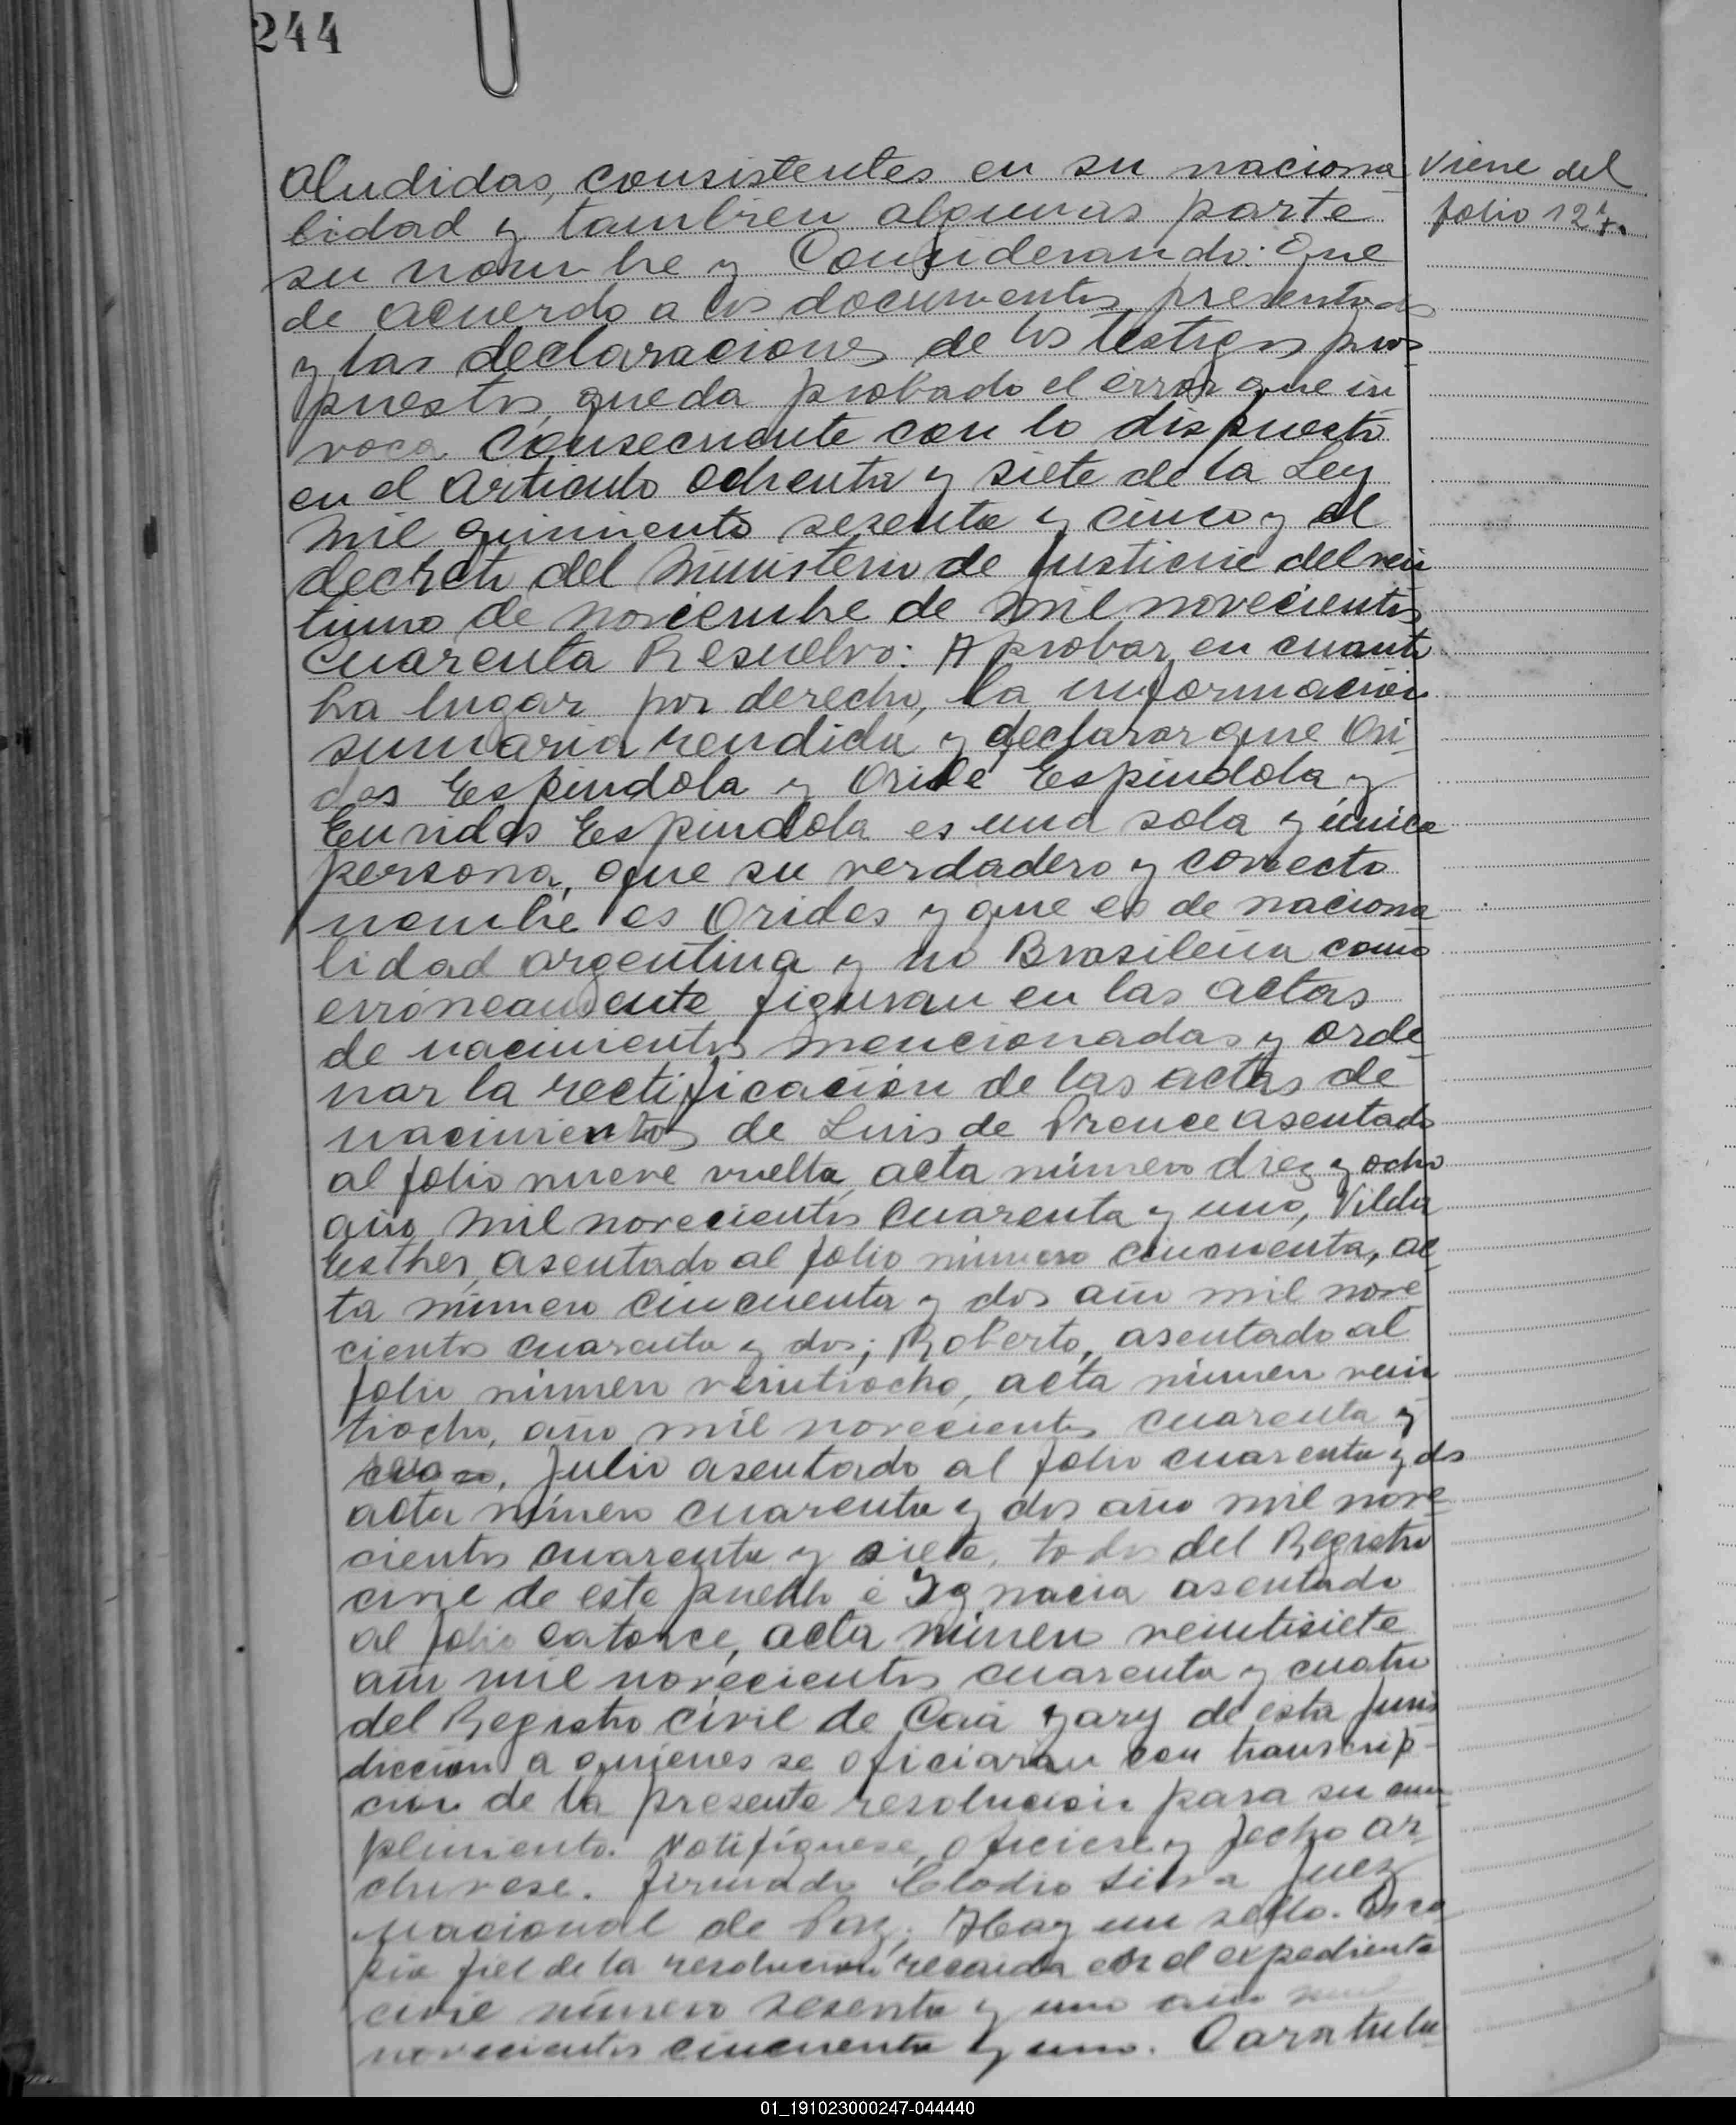 244
Viene del
folio 12
aludidas, consistentes en su naciona
lidad y tambien algunas parte
su nombre y Considerando: Que
de acuerdo a los documentos presentados
y las declaraciones de los testigos pro
puestos, queda probado el error que in
voca Consecuente con lo dispuesto
en el Articulo ochenta y siete de la Ley
mil quiniento sesenta y cinco y el
decreto del Ministerio de Justicia del vein
tiuno de noviembre de mil novecientos
cuarenta Resuelvo: Aprobar en cuanto
ha lugar por derecho, la información
sumaria rendida y declarar que Ori
des Espindola y Oride Espindola y
Eurides Espindola es una sola y única
persona, que su verdadero y correcto
nombre es Orides y que es de naciona
lidad argentina y no Brasileña como
erróneamente figuran en las actas
de nacimientos mencionadas y orde
nar la rectificación de las actas de
nacimientos de Luis de Prence asentado
al folio nueve vuelta, acta número diez y ocho
año mil novecientos cuarenta y uno, Vilda
Esther, asentado al folio número cincuenta, ac
ta número cincuenta y dos año mil nove
cientos cuarenta y dos; Roberto, asentado al
folio número veintiocho, acta número vein
tiocho, año mil novecientos cuarenta y
Julio asentado al folio cuarenta y dos
acta número cuarenta y dos año mil nove
cientos cuarenta y siete, todos del Registro
civil de este pueblo é Ignacia asentado
al folio catorce, acta número veintisiete
año mil novecientos cuarenta y cuatro
del Registro civil de Caá Yary de esta juris
dicción a quienes se oficiaran con transcrip-
cion de la presente resolución para su cum
plimiento. Notifíquese, oficiese y fecho ar
chivese. firmado Clodio Silva Juez
nacional de Paz. Hay un sello. Es co
pia fiel de la resolución recaida en el expediente
civil número sesenta y uno año mil
novecientos cincuenta y uno. Caratula